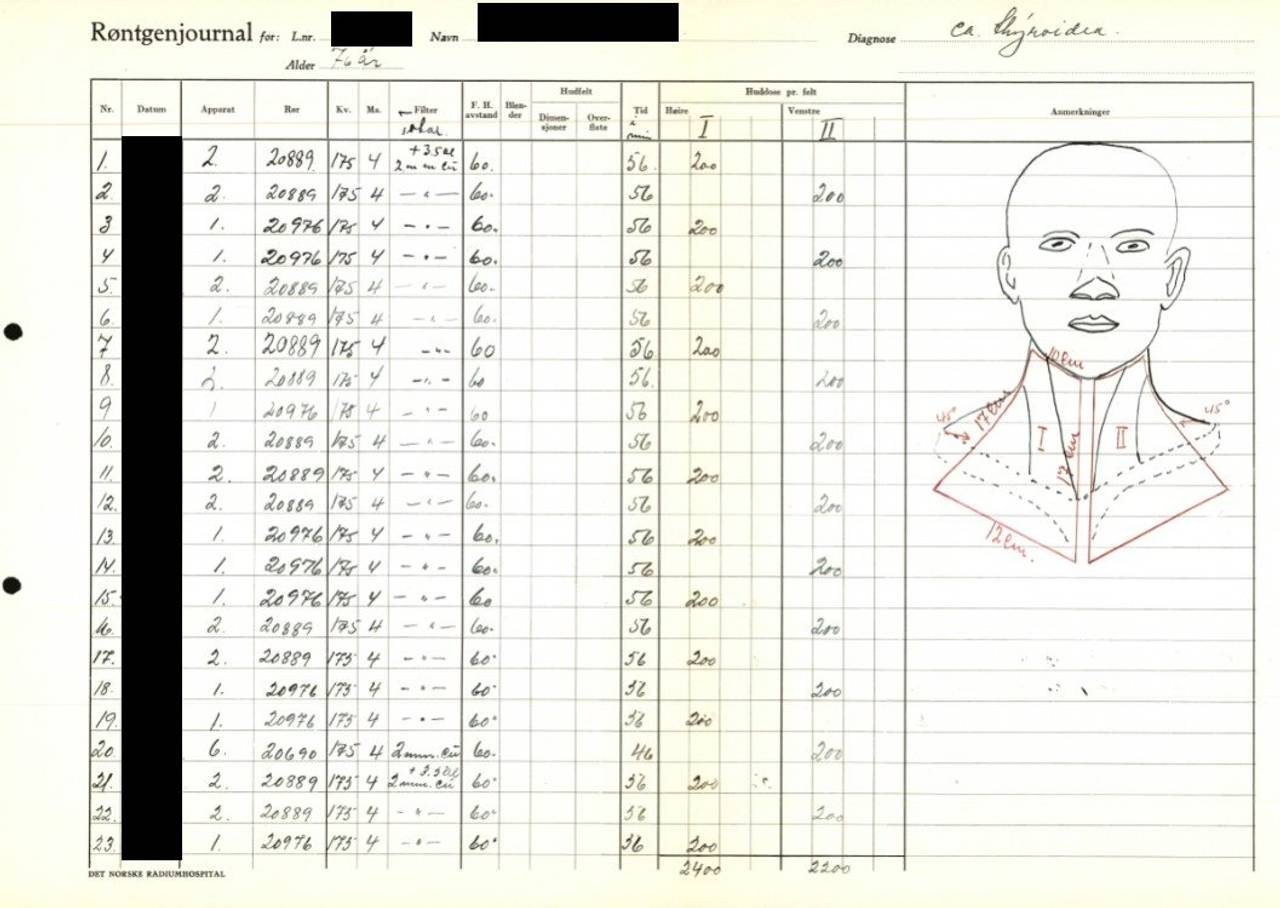 Røntgenjournal for: L.nr. Navn Diagnose ca. Thyroidea.
Alder 76 år
Nr. Datum Apparat Rør Kv. Ma. Filter F. H. avstand Blen-der Hudfelt Dimen-sjoner Over-flate Tid i min Huddose pr. felt Høire I Venstre II Anmerkninger
1. 2. 20889 175 4 2 mm cu 60. 56. 200
2. 2. 20889 175 4 — " — 60. 56 200
3 1. 20976 175 4 — " — 60. 56 200
4 1. 20976 175 4 — " — 60. 56 200
5. 2. 20889 175 4 — " — 60. 56 200
6. 1. 20889 175 4 — " — 60. 56 200
7 2. 20889 175 4 — " — 60 56 200
8. 2. 20889 175 4 — " — 60 56. 200
9 1 20976 175 4 — " — 60 56 200
10. 2. 20889 175 4 — " — 60. 56 200
11. 2. 20889 175 4 — " — 60. 56 200
12. 2. 20889 175 4 — " — 60. 56 200
13. 1. 20976 175 4 — " — 60. 56 200
14. 1. 20976 175 4 — " — 60. 56 200
15. 1. 20976 175 4 — " — 60 56 200
16. 2. 20889 175 4 — " — 60. 56 200
17. 2. 20889 175 4 — " — 60. 56 200
18. 1. 20976 175 4 — " — 60. 56 200
19. 1. 20976 175 4 — " — 60. 56 200
20. 6. 20690 175 4 2 mm. cu 60. 46 200
21. 2. 20889 175 4 2 mm. cu 60. 56 200
22. 2. 20889 175 4 — " — 60. 56 200
23. 1. 20976 175 4 — " — 60. 56 200
2400 2200
10 cm
45° 17 cm I 17 cm II 45°
12 cm.
DET NORSKE RADIUMHOSPITAL